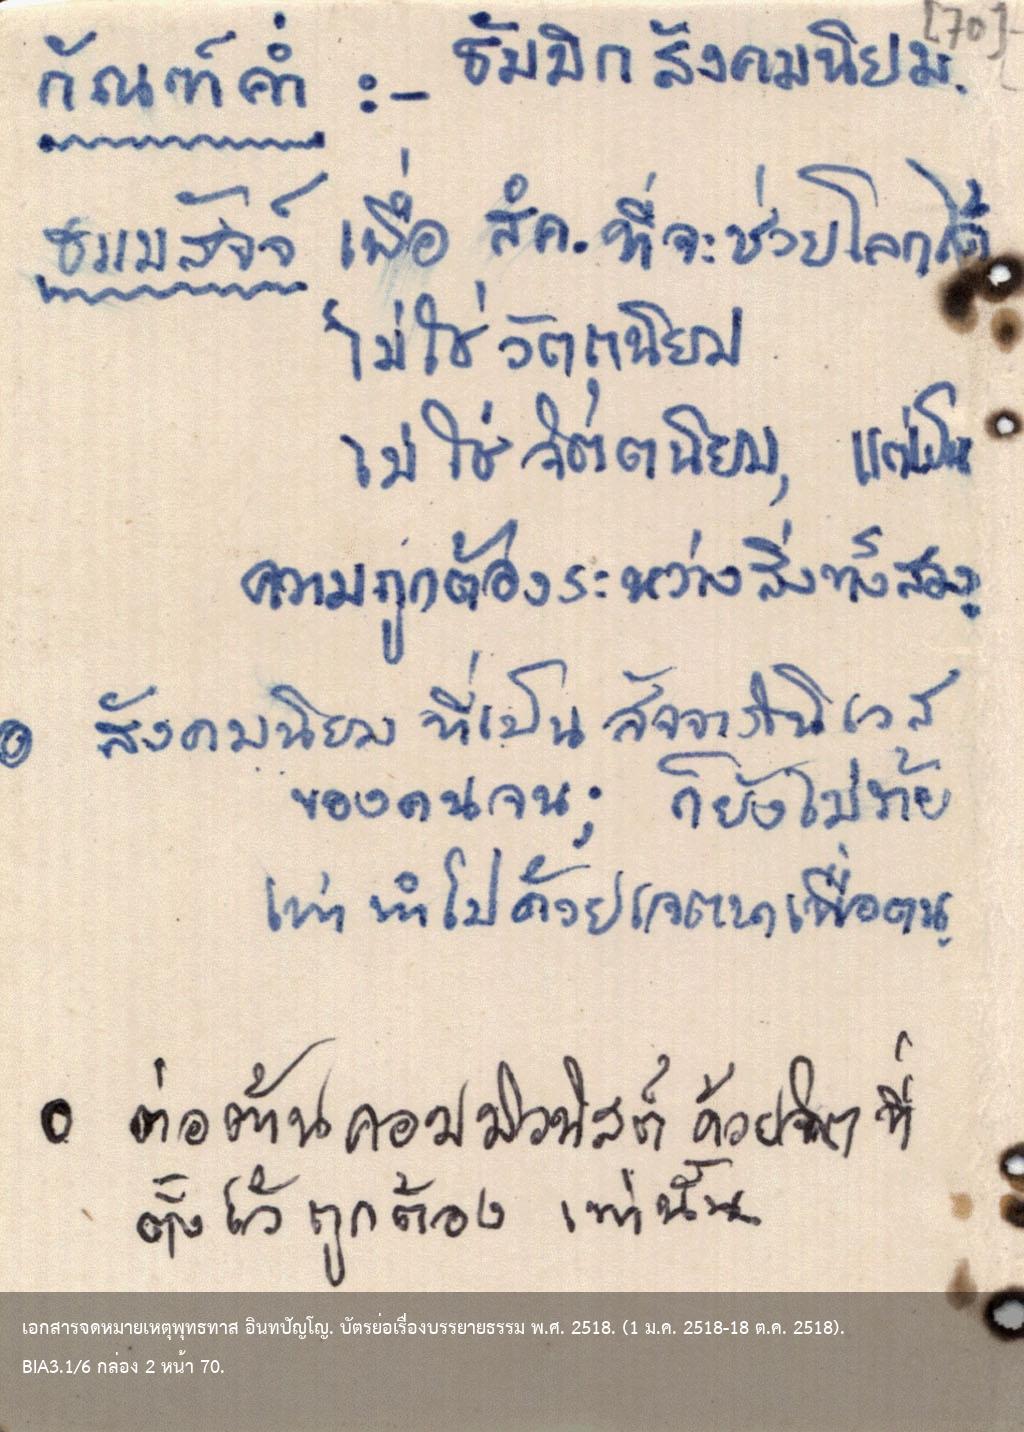 [70]
กัณฑ์ค่ำ :- ธัมมิกสังคมนิยม.
ธมมสัจจ์ เพื่อ สํค. ที่จะช่วยโลกได้
ไม่ใช่วัตถุนิยม
ไม่ใช่จิตตนิยม, แต่เป็น
ความถูกต้องระหว่างสิ่งทั้งสอง:
สังคมนิยม ที่เป็น สัจจาภินิเวส
ของคนจน; ก็ยังไม่
เท่า ทำไปด้วยเจตนาเพื่อตน.
ต่อต้านคอมมิวนิสต์ ด้วยจิต ที่
ตั้งไว้ ถูกต้อง เท่านั้น
เอกสารจดหมายเหตุพุทธทาส อินทปัญโญ. บัตรย่อเรื่องบรรยายธรรม พ.ศ. 2518. (1 ม.ค. 2518-18 ต.ค. 2518).
BIA3.1/6 กล่อง 2 หน้า 70.